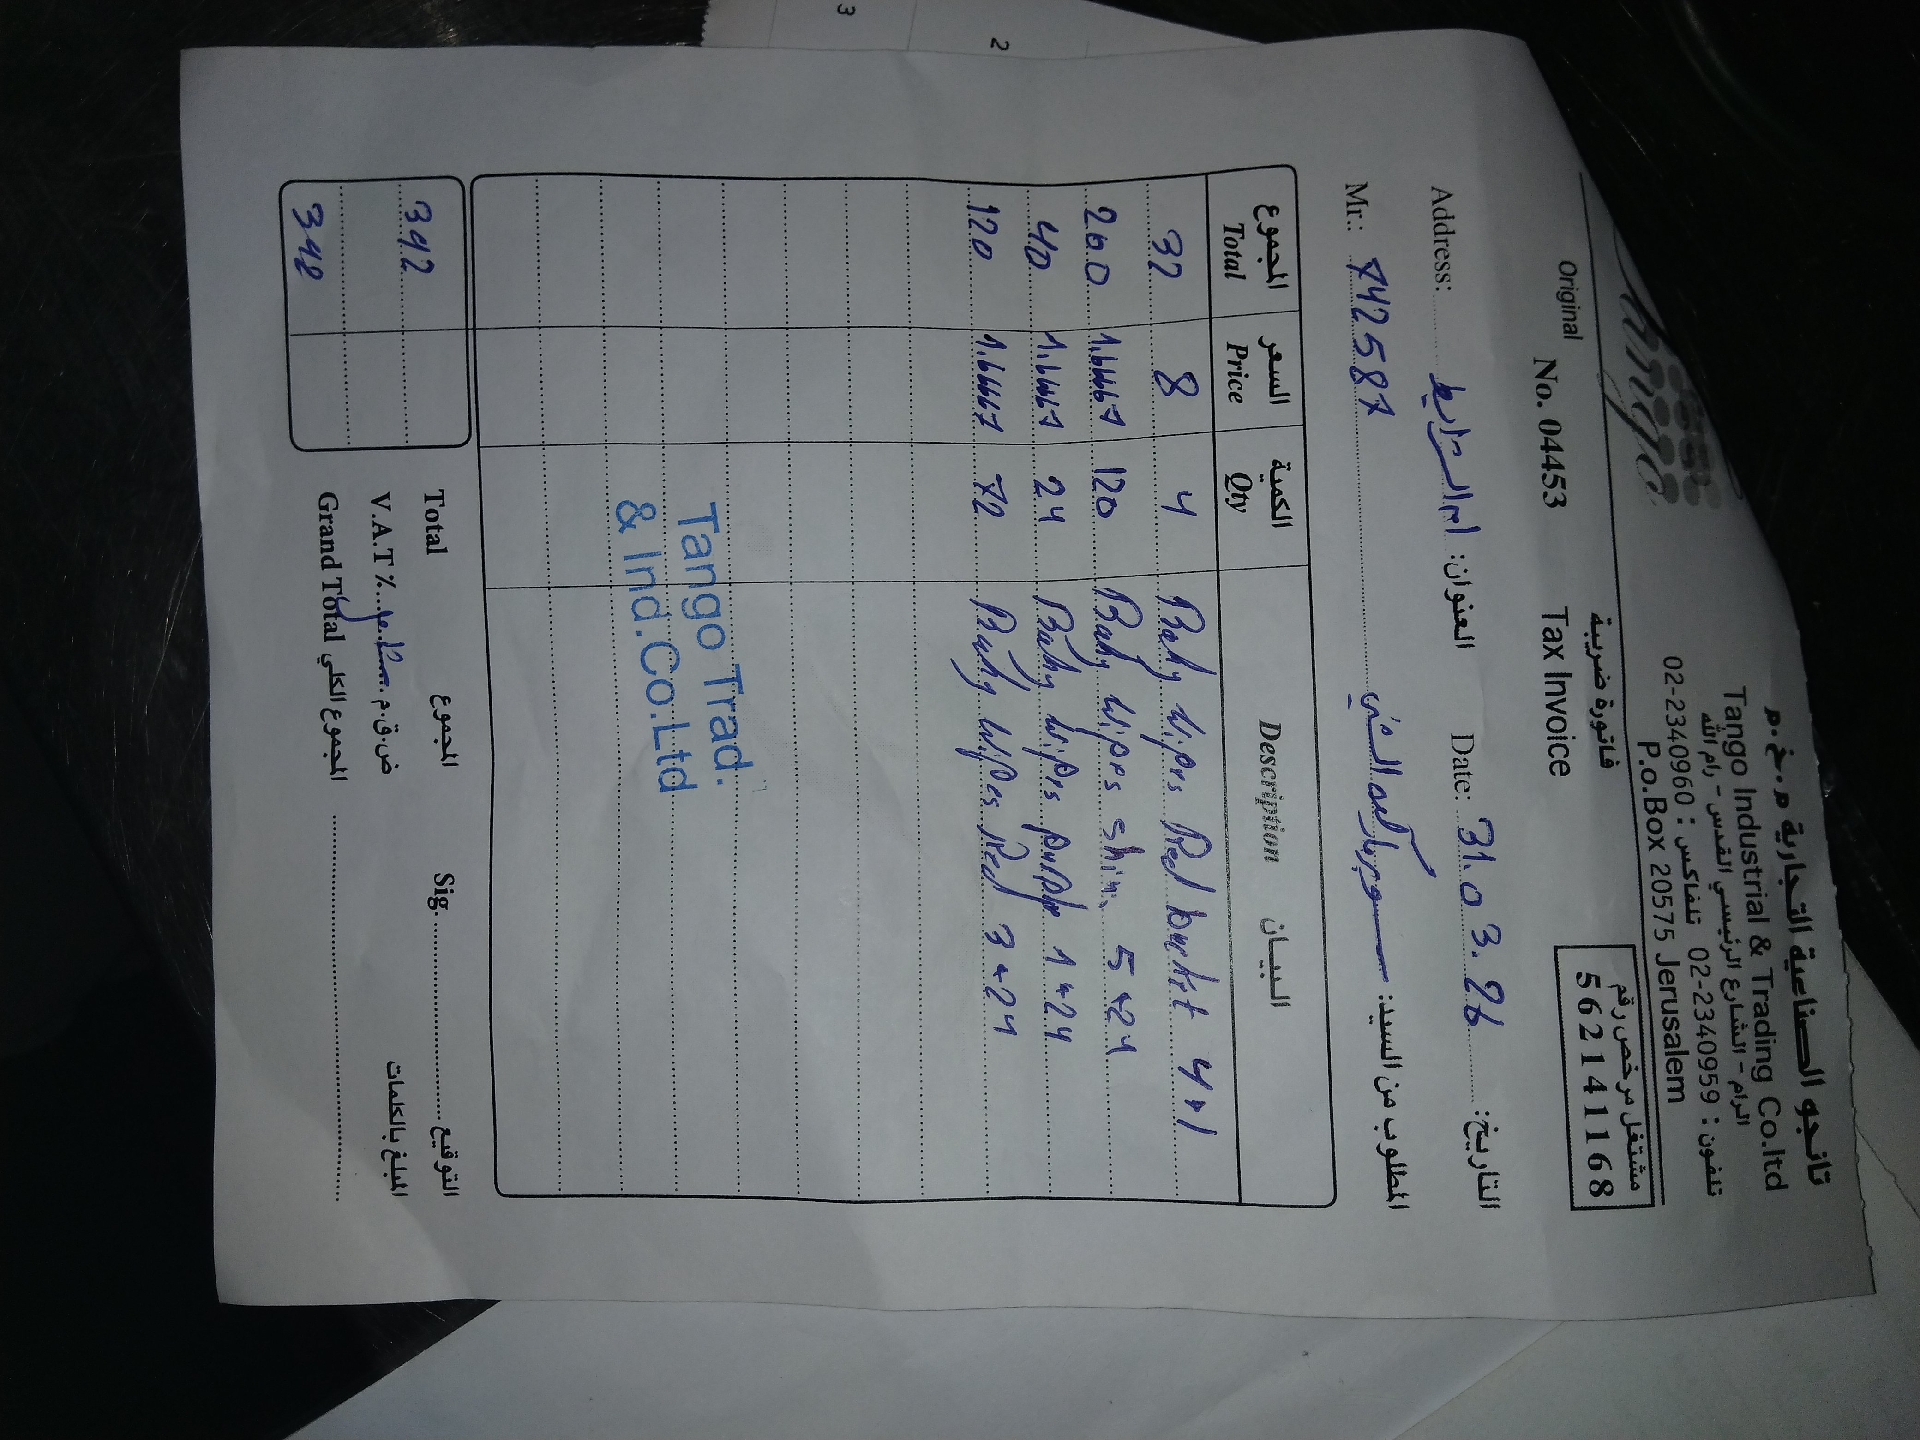 تانجو الصناعية التجارية م.خ.م
Tango Industrial & Trading Co.ltd
الرام - الشارع الرئيسي القدس - رام الله
تلفون : 02-2340959 تلفاكس : 02-2340960
P.o.Box 20575 Jerusalem
Tango
فاتورة ضريبية
مشتغل مرخص رقم
562141168
Original No. 04453 Tax Invoice
Address: ام الشرايط العنوان: Date: 31.03.26 التاريخ:
Mr.: 742587 المطلوب من السيد:
المجموع السعر الكمية البيـــان
Total Price Qty Description
32 8 4 Baby Wipes Red bucket 4*1
200 1.6667 120 Baby Wipes 5*24
40 1.6667 24 Baby Wipes purple 1*24
120 1.6667 72 Baby Wipes Red 3*24
Tango Trad.
& Ind.Co.Ltd
392 Total المجموع Sig. التوقيع
V.A.T % ض.ق.م. المبلغ بالكلمات
Grand Total المجموع الكلي
2
3